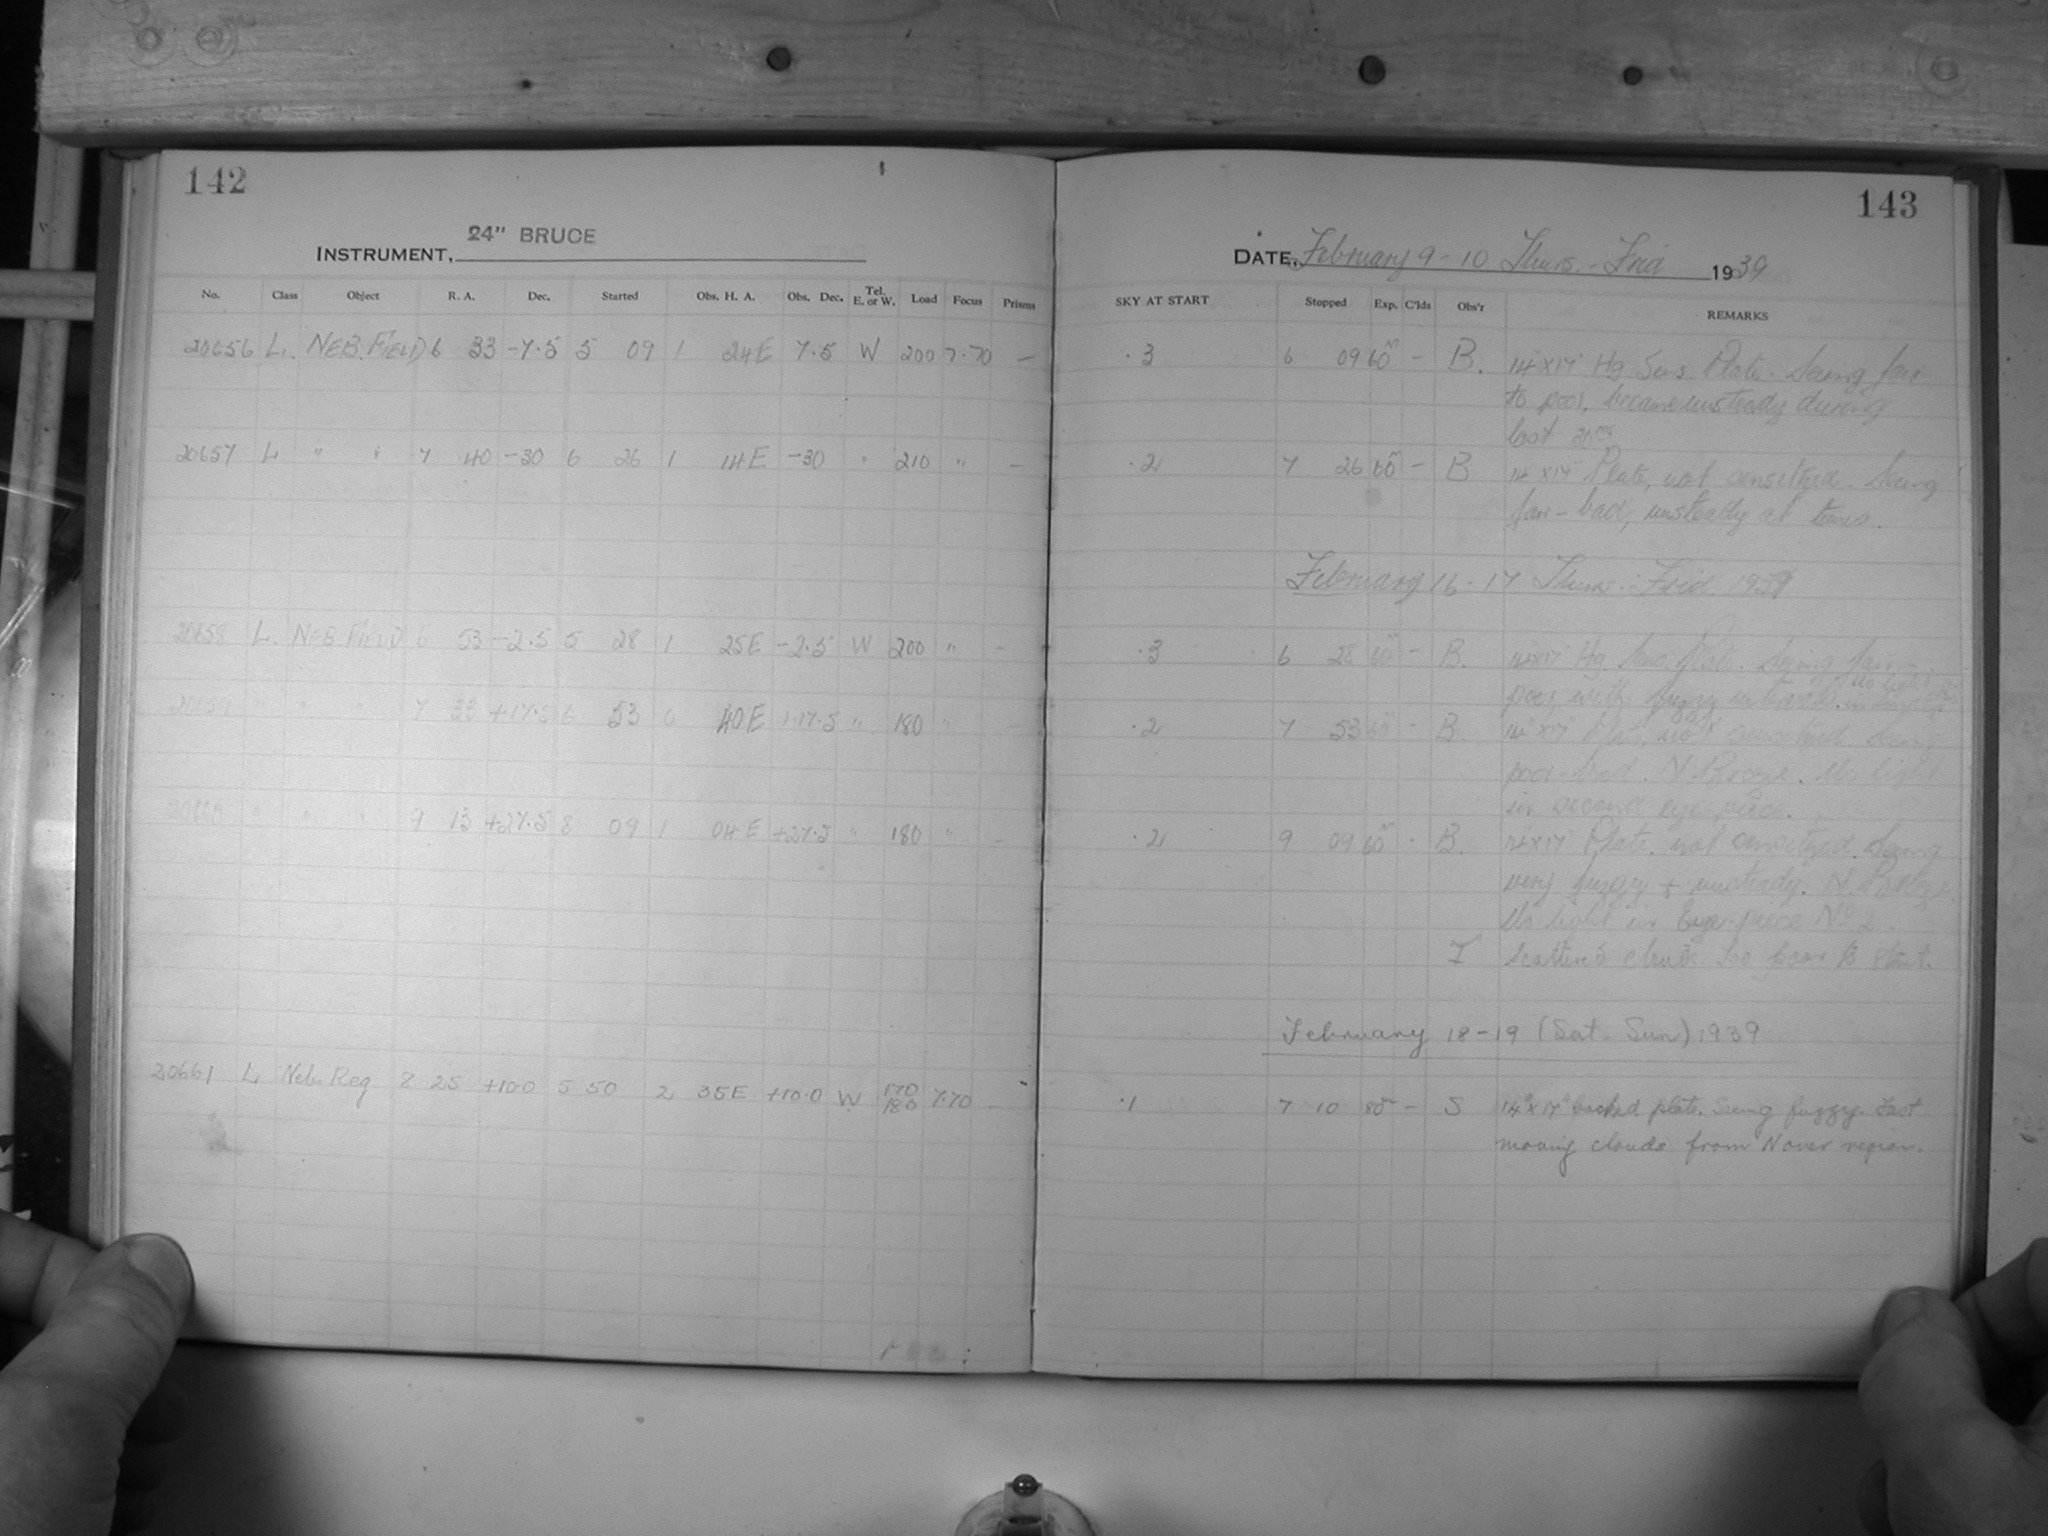 142
24" BRUCE
INSTRUMENT,
No. Class Object R. A. Dec. Started Obs. H. A. Obs. Dec. Tel. E. or W. Load Focus Prisms
20656 L. NEB. FIELD 6 33 -7.5 5 09 1 24E 7.5 W 200 7.70 —
20657 L " " 7 40 -30 6 26 1 14E -30 " 210 " —
20658 L. NEB. FIELD 6 53 -2.5 5 28 1 25E -2.5 W 200 " -
20659 " " " 7 33 +17.5 6 53 0 40E +17.5 " 180 " -
20660 " " " 9 13 +27.5 8 09 1 04E +27.5 " 180 " -
20661 L Neb. Reg 8 25 +10.0 5 50 2 35E +10.0 W 170 180 7.70 —
143
DATE, February 9-10 Thurs.-Frid 1939
SKY AT START Stopped Exp. C'lds Obs'r REMARKS
.3 6 09 60m - B. 14"x17" Hg. Sens. Plate. Seeing fair
to poor, became unsteady during
last 20m
.2 7 26 60m - B 14"x17" Plate, not sensitized. Seeing
fair-bad, unsteady at times.
February 16-17 Thurs.-Frid. 1939
.3 6 28 60m - B. 14"x17" Hg. Sens. Plate. Seeing fair-
poor, with fuzzy intervals. No light
.2 7 53 60m - B. 14"x17" Plate, not sensitized. Seeing
poor-bad. N. Breeze. No light
in second eye-piece.
.2 9 09 60m - B. 14"x17" Plate, not sensitized. Seeing
very fuzzy + unsteady. N. Breeze.
No light in Eye-piece No 2.
I Scattered clouds. Too poor to start.
February 18-19 (Sat-Sun) 1939
.1 7 10 80m - S 14"x17" backed plate. Seeing fuzzy. Fast
moving clouds from N over region.